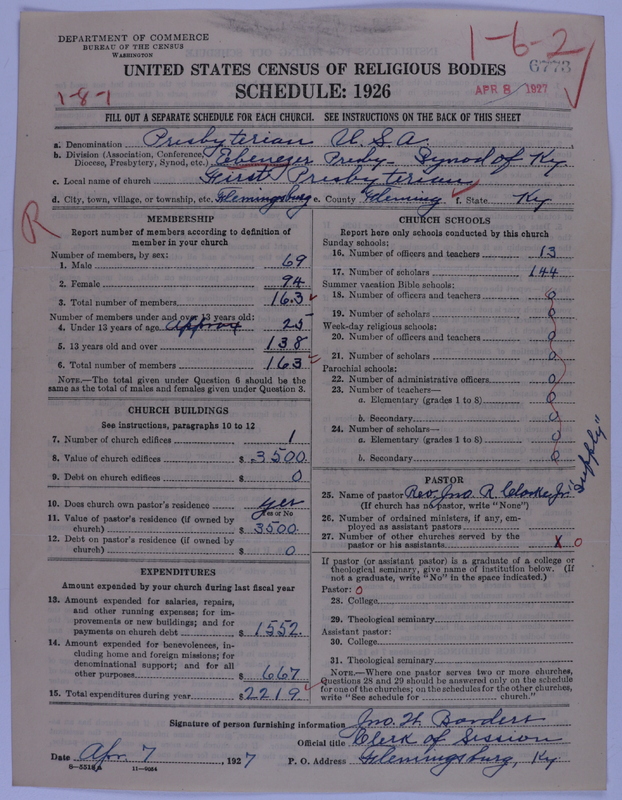 DEPARTMENT OF COMMERCE
BUREAU OF THE CENSUS
WASHINGTON
1-6-2
6773
1-8-7
APR 8 1927
UNITED STATES CENSUS OF RELIGIOUS BODIES
SCHEDULE: 1926
FILL OUT A SEPARATE SCHEDULE FOR EACH CHURCH. SEE INSTRUCTIONS ON THE BACK OF THIS SHEET
a. Denomination Presbyterian U.S.A.
b. Division (Association, Conference, Diocese, Presbytery, Synod, etc.) Ebenezer Presby- Synod of Ky.
c. Local name of church First Presbyterian
d. City, town, village, or township, etc. Flemingsburg e. County Fleming f. State Ky
R
MEMBERSHIP
Report number of members according to definition of
member in your church
Number of members, by sex:
1. Male 69
2. Female 94
3. Total number of members 163
Number of members under and over 13 years old:
4. Under 13 years of age Approx 25
5. 13 years old and over 138
6. Total number of members 163
NOTE.—The total given under Question 6 should be
same as the total of males and females given under Question 3.
CHURCH BUILDINGS
See instructions, paragraphs 10 to 12
7. Number of church edifices 1
8. Value of church edifices $ 3500.
9. Debt on church edifices $ 0
10. Does church own pastor's residence yes
Yes or No
11. Value of pastor's residence (if owned by
church) $ 3500.
12. Debt on pastor's residence (if owned by
church) $ 0
EXPENDITURES
Amount expended by your church during last fiscal year
13. Amount expended for salaries, repairs,
and other running expenses; for im-
provements or new buildings; and for
payments on church debt $ 1552.
14. Amount expended for benevolences, in-
cluding home and foreign missions; for
denominational support; and for all
other purposes $ 667
15. Total expenditures during year $ 2219.
CHURCH SCHOOLS
Report here only schools conducted by this church
Sunday schools:
16. Number of officers and teachers 13
17. Number of scholars 144
Summer vacation Bible schools:
18. Number of officers and teachers 0
19. Number of scholars 0
Week-day religious schools:
20. Number of officers and teachers 0
21. Number of scholars 0
Parochial schools:
22. Number of administrative officers 0
23. Number of teachers—
a. Elementary (grades 1 to 8) 0
b. Secondary 0
24. Number of scholars—
a. Elementary (grades 1 to 8) 0
b. Secondary 0
PASTOR
25. Name of pastor Rev. Jno. R. Clarke Jr. "Supply"
(If church has no pastor, write "None")
26. Number of ordained ministers, if any, em-
ployed as assistant pastors
27. Number of other churches served by the
pastor or his assistants X 0
If pastor (or assistant pastor) is a graduate of a college or
theological seminary, give name of institution below. (If
not a graduate, write "No" in the space indicated.)
Pastor: 0
28. College
29. Theological seminary
Assistant pastor:
30. College
31. Theological seminary
NOTE.—Where one pastor serves two or more churches,
Questions 28 and 29 should be answered only on the schedule
for one of the churches; on the schedules for the other churches,
write "See schedule for church."
Signature of person furnishing information Jno. W. Banders
Official title Clerk of Session
Date Apr. 7, 1927 P. O. Address Flemingsburg, Ky
8—5518a 11-9084